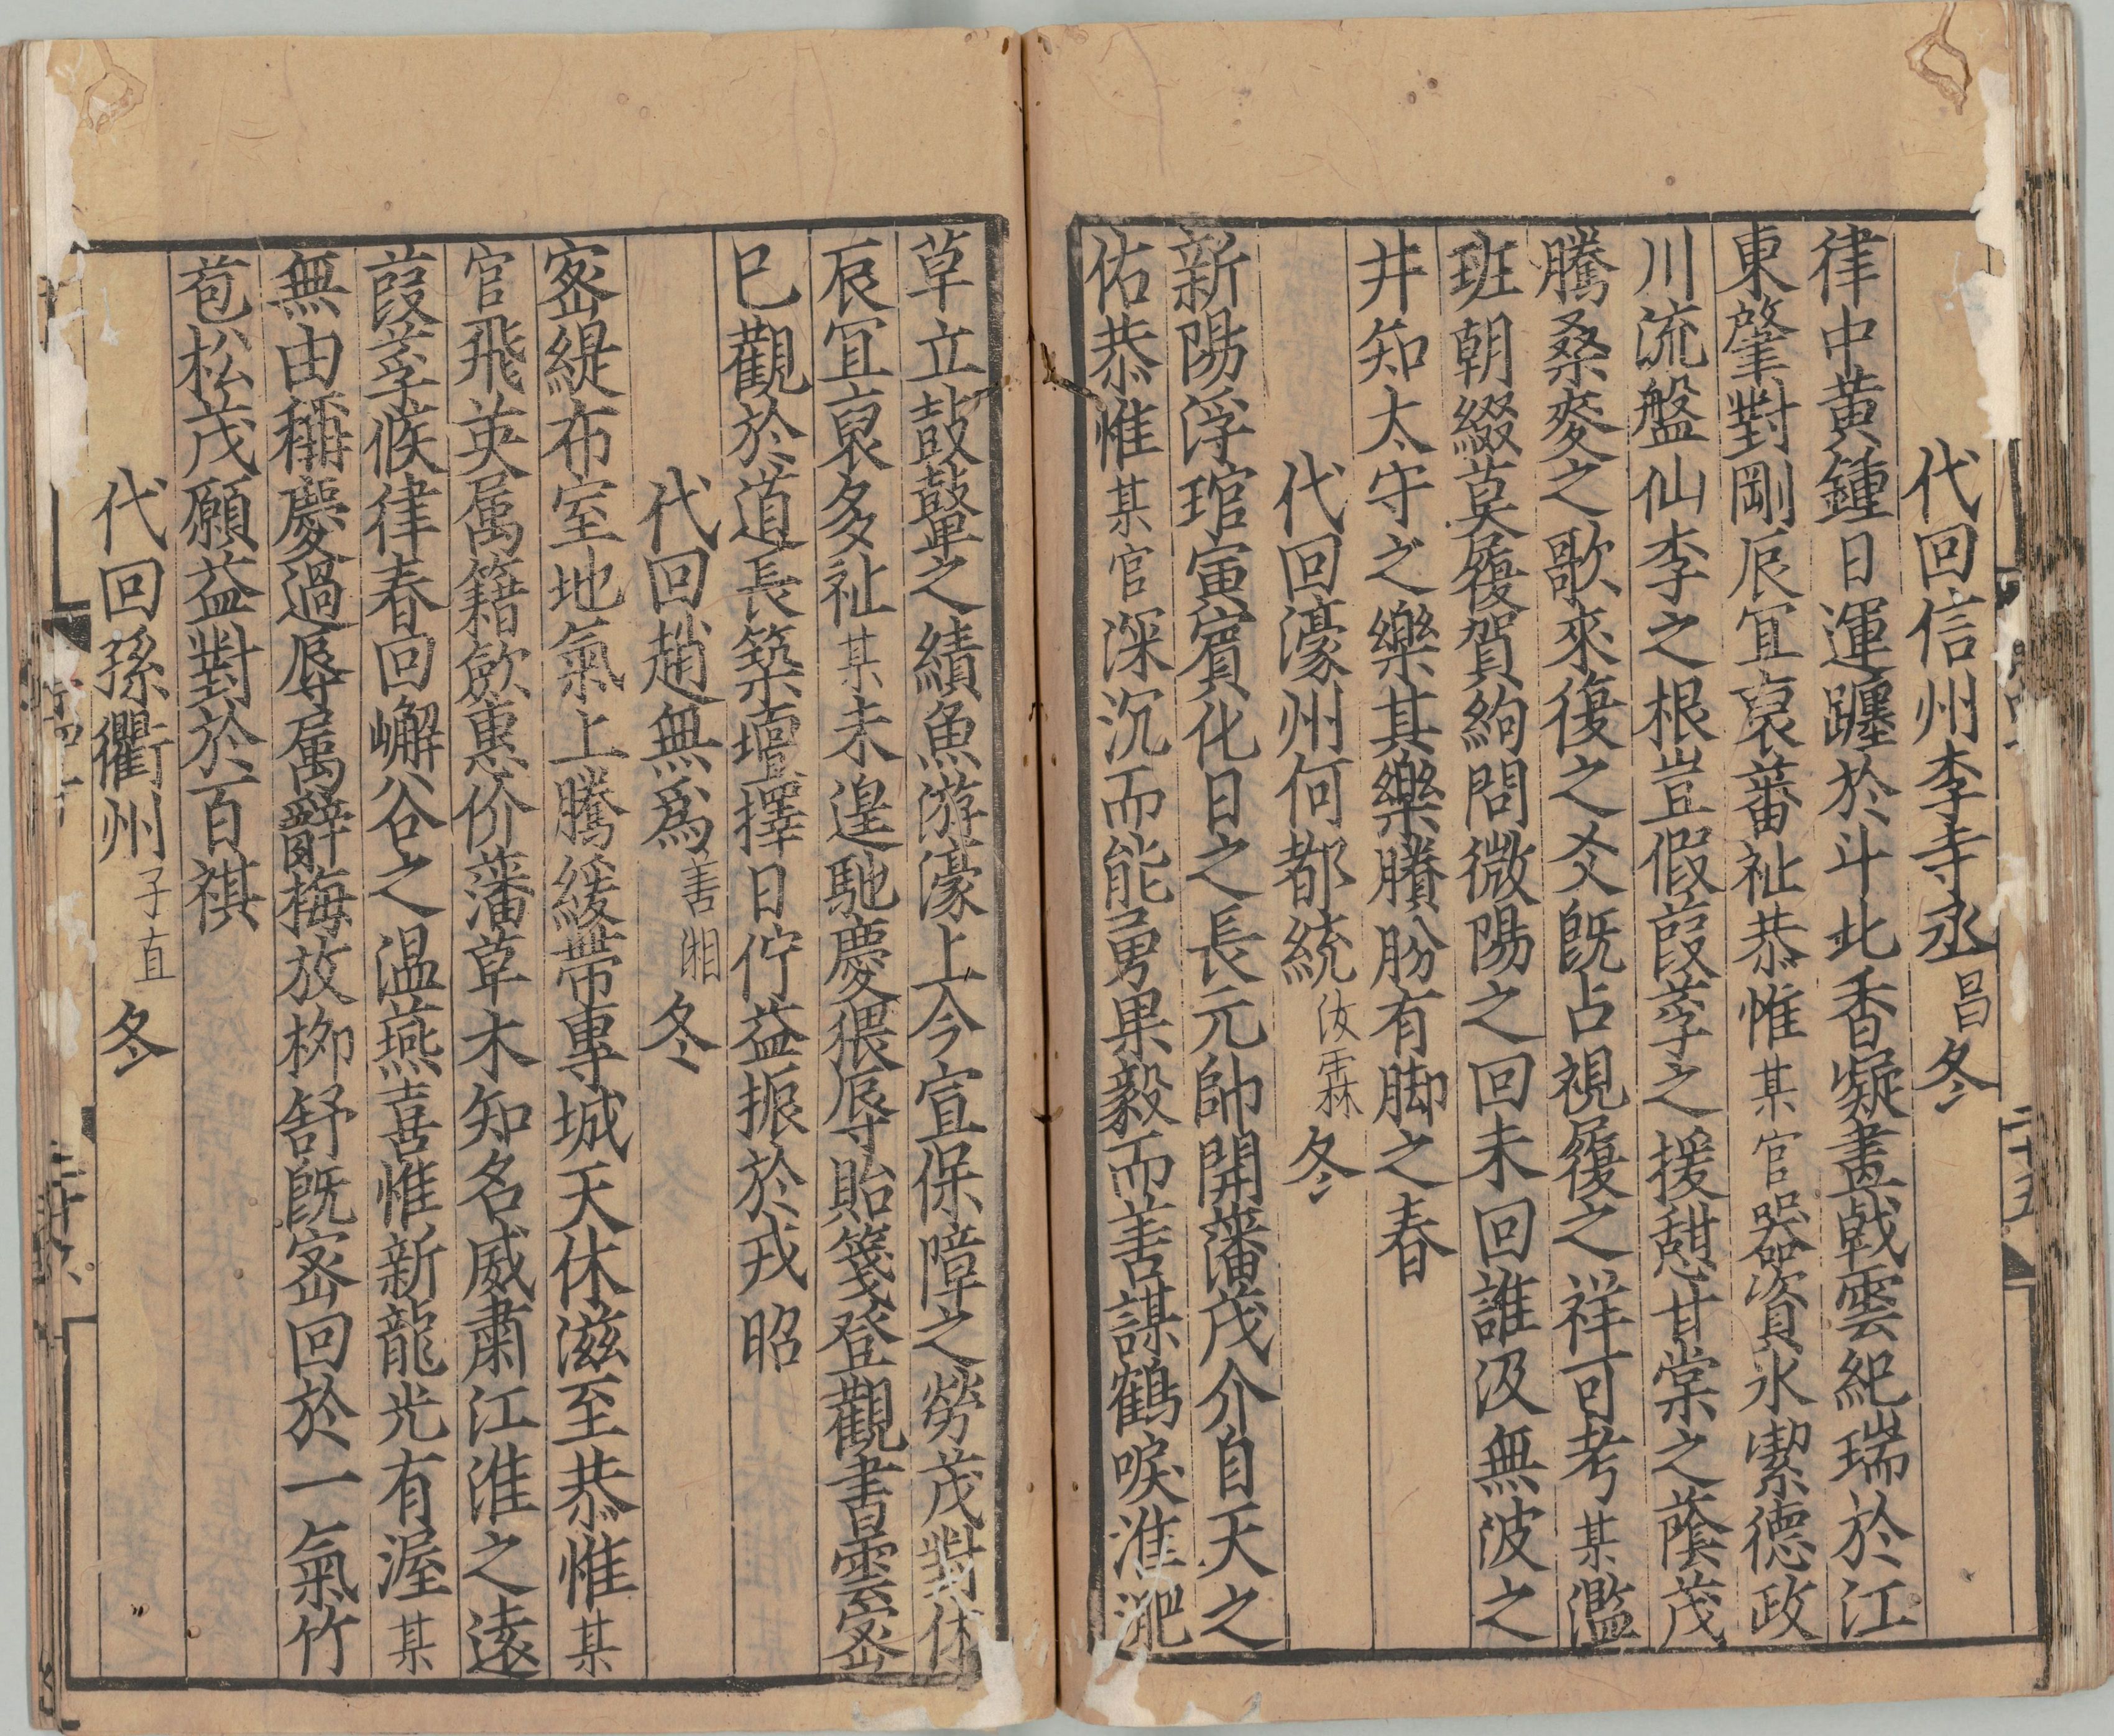 代回信州李寺丞昌冬
律中黄鍾日運躔於斗北香凝畫戟雲紀瑞於江
東肇對剛辰冝裒蕃祉恭惟某官器資氷潔德政
川流盤仙李之根豈假葭莩之援憇甘棠之蔭茂
騰桑麥之歌來復之爻旣占視履之祥可考某濫
班朝綴莫履賀絢問微陽之回未回誰汲無波之
井知太守之樂其樂賸盼有脚之春
代回濠州何都統汝霖冬
新陽浮琯寅賓化日之長元帥開藩茂介自天之
佑恭惟某官深沉而能勇果毅而善謀鶴唳淮淝
草立鼓鼙之績魚游濠上今宣保障之勞茂對休
辰冝裒多祉某未遑馳慶猥辱貽箋登觀書雲宻
已觀於道長築壇擇日佇益振於戎昭
代回趙無爲善湘冬
宻緹布室地氣上騰緩帶專城天休滋至恭惟某
官飛英属籍歛惠价藩草木知名威肅江淮之遠
葭莩候律春回嶰谷之温燕喜惟新龍光有渥某
無由稱慶過辱属辭梅放栁舒旣宻回於一氣竹
苞松茂願益對於百祺
代回孫衢州子直冬
二十五
二十六